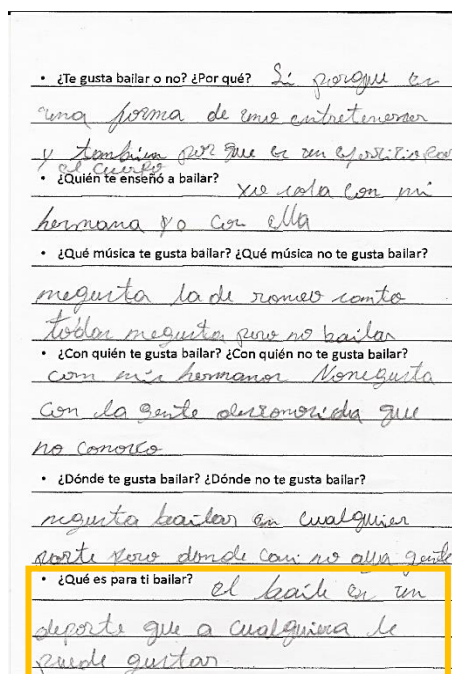 • ¿Te gusta bailar o no? ¿Por qué? Si porque es
una forma de uno entretenerser
y tambien por que es un
el cuerpo
• ¿Quién te enseñó a bailar? yo sola con mi
hermana yo con ella
• ¿Qué música te gusta bailar? ¿Qué música no te gusta bailar?
megusta la de romeo santo
todas megusta pero no bailar
• ¿Con quién te gusta bailar? ¿Con quién no te gusta bailar?
com mis hermanos Nonegusta
con la gente que
no conosco
• ¿Dónde te gusta bailar? ¿Dónde no te gusta bailar?
megusta bailar en cualquier
parte pero donde casi no alla gente
• ¿Qué es para ti bailar? el baile es un
deporte que a cualquiera le
puede gustar